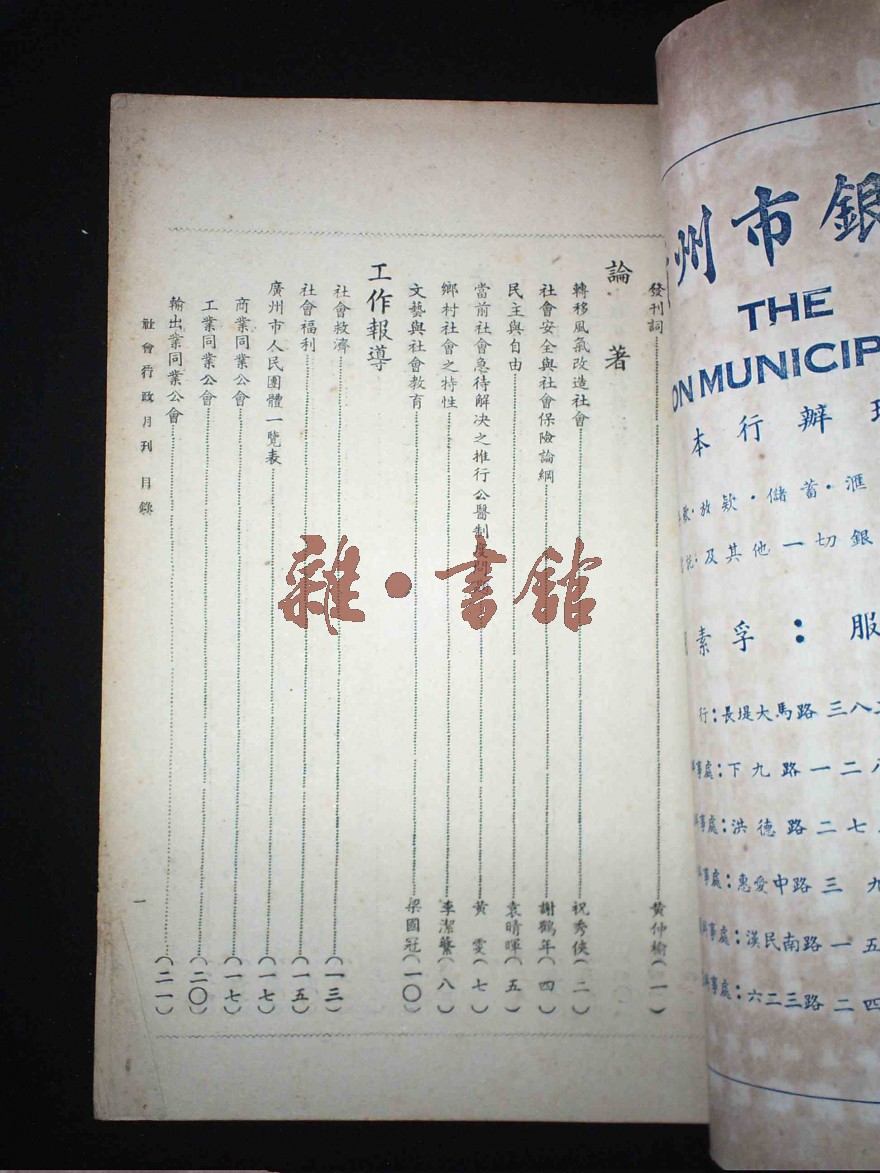 發刊詞 黃仲榆(一)
論著
轉移風氣改造社會 祝秀俠(二)
社會安全與社會保險論綱 謝鶴年(四)
民主與自由 袁晴暉(五)
當前社會急待解决之推行公醫制度問題 黃雯(七)
鄉村社會之特性 李潔藜(八)
文藝與社會教育 梁國冠(一〇)
工作報導
社會救濟 (一三)
社會福利 (一五)
廣州市人民團體一覽表 (一七)
商業同業公會 (一七)
工業同業公會 (二〇)
輸出業同業公會 (二一)
社會行政月刊 目錄
一
雜·書館
州市銀
THE
ON MUNICIP
本行辦
放欵·儲蓄·滙
及其他一切銀
素孚:服
行:長堤大馬路三八二
事處:下九路一二八
事處:洪德路二七
事處:惠愛中路三九
事處:漢民南路一五
事處:六二三路二四